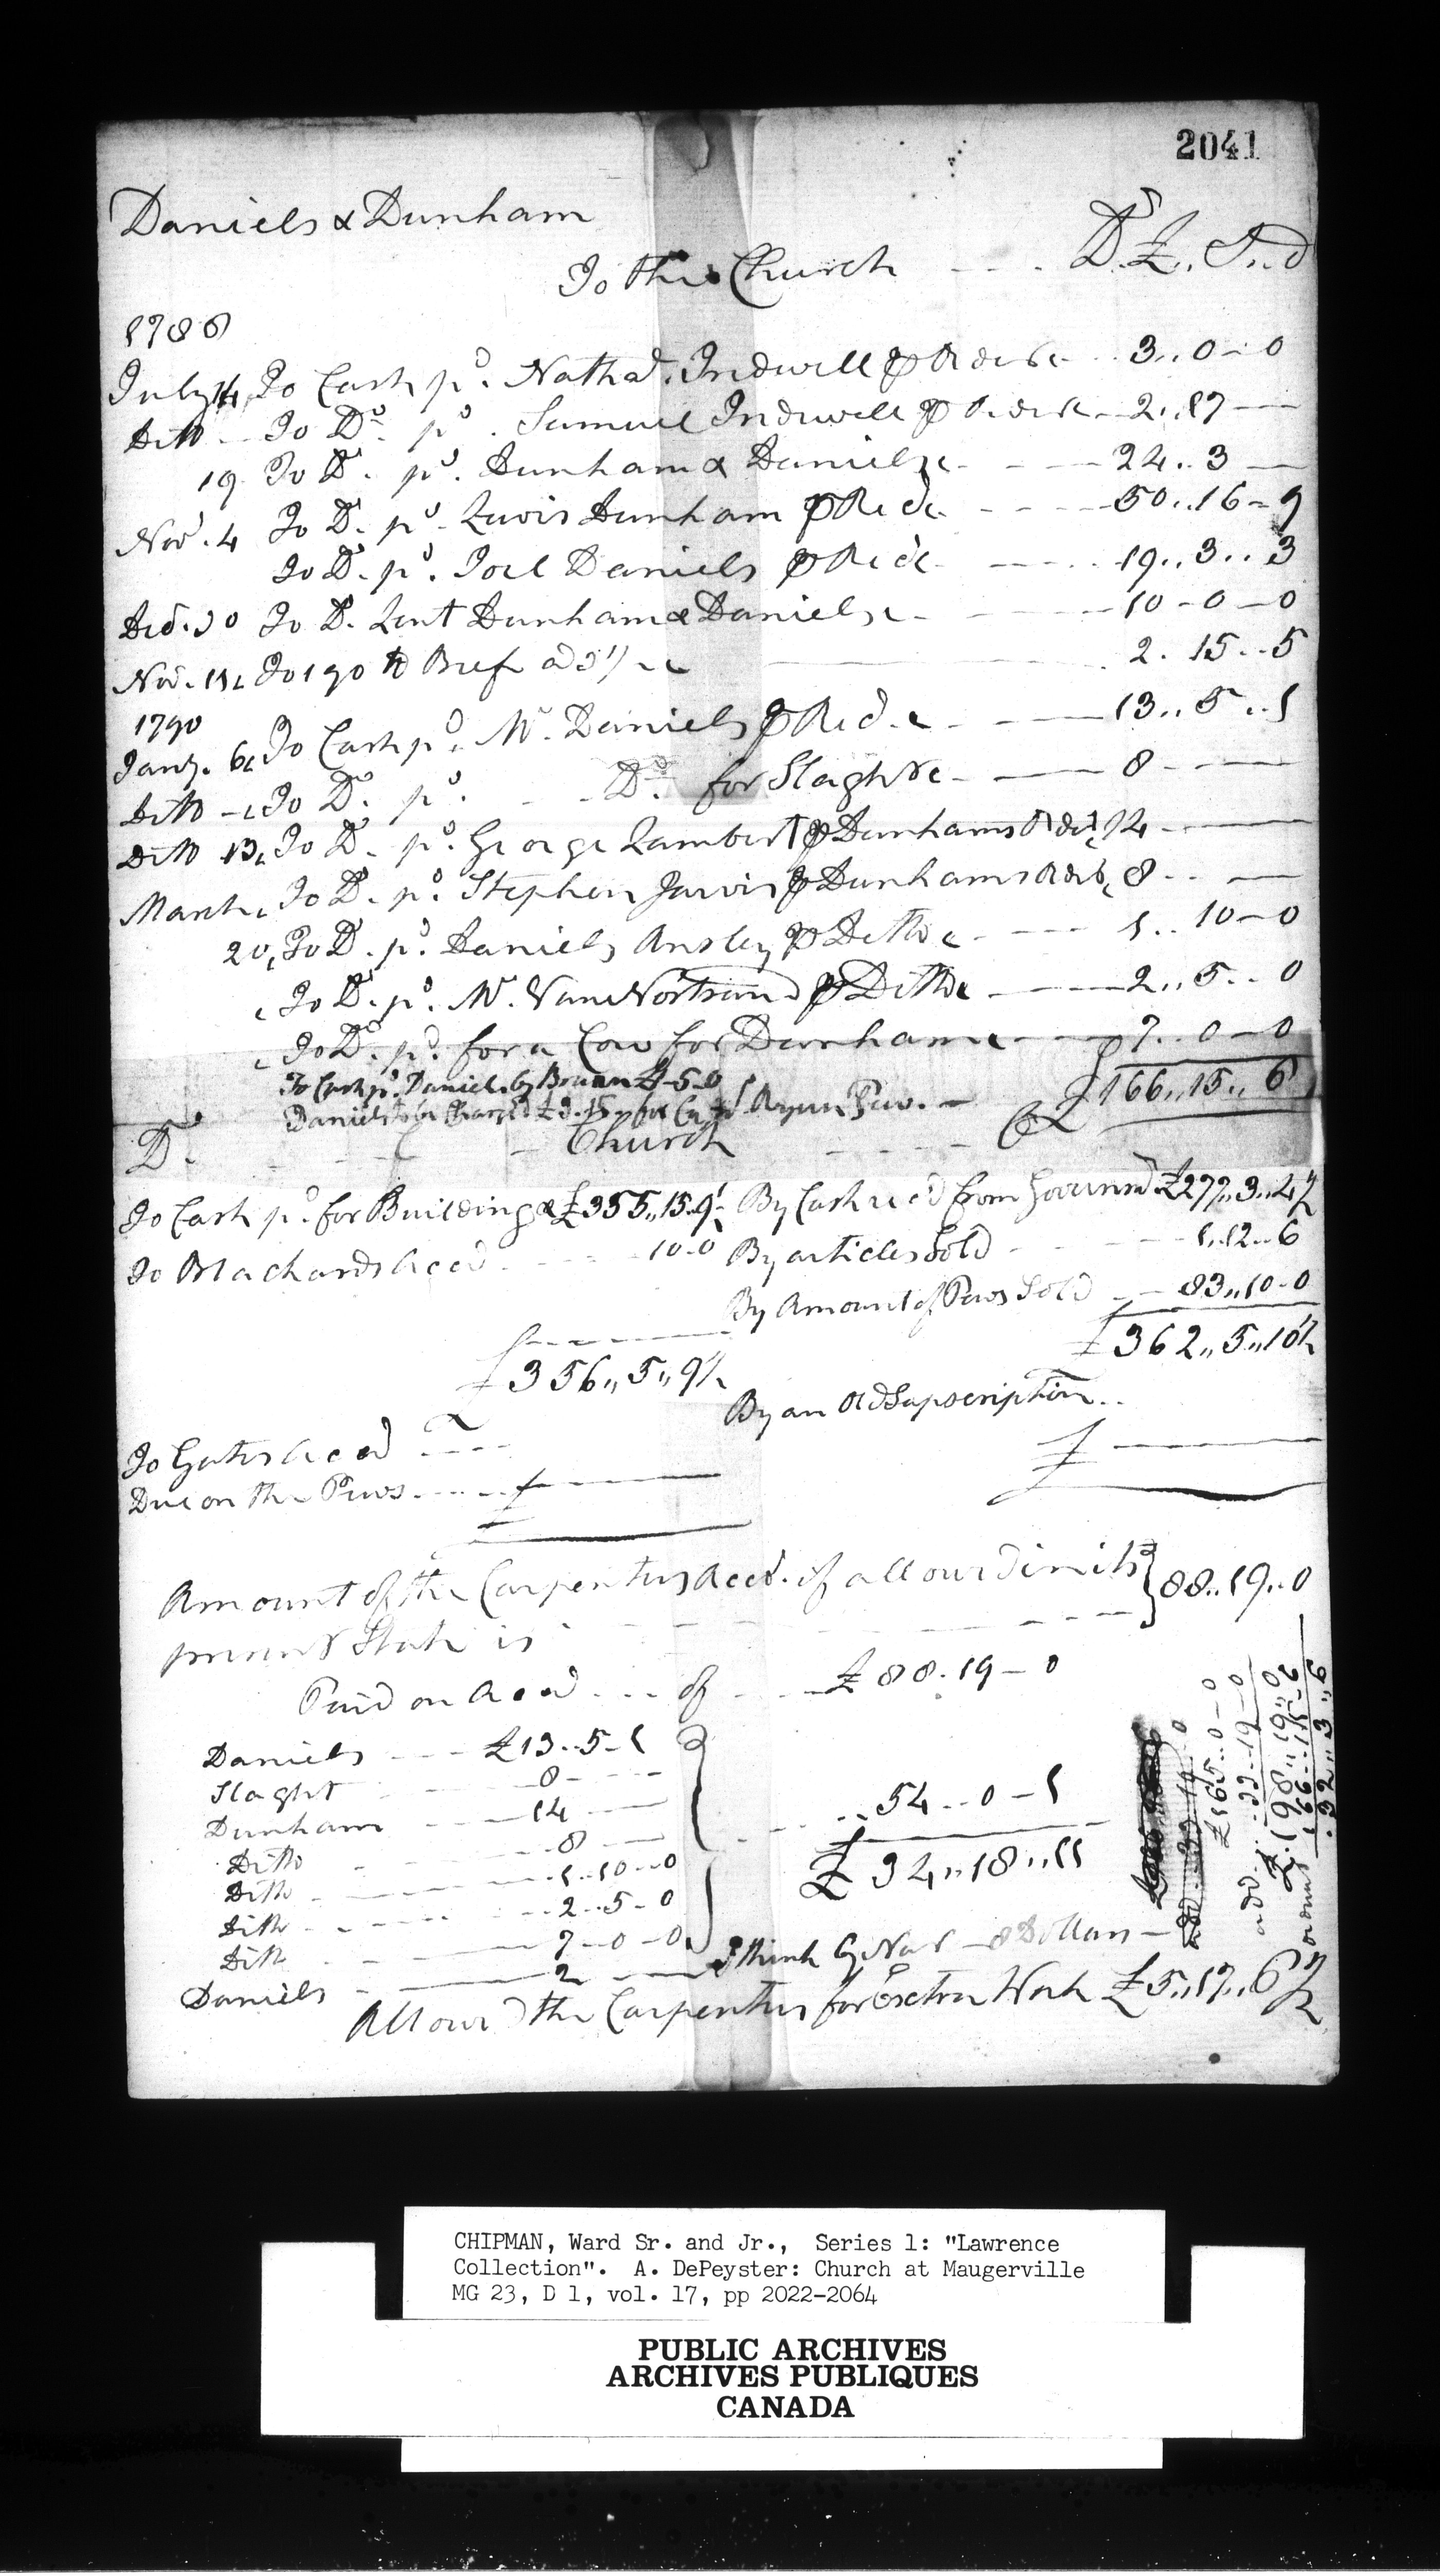 2041
Daniels & Dunham
To the Church Dr £ S d
1786
July 14 To Cash pd. Nathal. Tredwell ⅌ Order 3..0-0
Ditto To Do pd. Samuel Tredwell ⅌ Order 2..17
19 To Do. pd. Dunham & Daniels 24..3
Nov. 4 To Do. pd. Lewis Dunham ⅌ Recd 50..16-9
To Do. pd. Joel Daniels ⅌ Recd 19..3..3
Decd. 30 To Do. Lent Dunham & Daniels 10-0-0
Nov. To 190 lb Beef 2. 15..5
1790
Jany. 6 To Cash pd. Mr. Daniels ⅌ Recd 13..5..1
Ditto To Do. pd. Do for Slaght 8
Ditto 13 To Do. pd. George Lambert ⅌ Dunhams Order 14
March To Do. pd. Stephen Jarvis ⅌ Dunhams Order 8
20 To Do. pd. Daniels Ansley ⅌ Ditto 1..10-0
To Do. pd. Mr. Vane Nortrand ⅌ Ditto 2..5..0
To Do. pd. for a Cow for Dunham 7..0-0
To Cash pd. Daniels by Brunn £-5-0
Daniels to be Charged £3.15 for Ryan Pew. £166..15..6
Dr. Church Cr
To Cash pd. for Building &c £355..15..9½ By Cash recd from Governmt £277..3..4½
To Blachards Accd 10-0 By articles Sold 1..12..6
By Amount of Pews Sold 83..10-0
£362..5..10½
£356..5..9½
By an Old Supscription
£
To Gates Accd
Due on the Pews £
Amount of the Carpenters Accd. if allowd in its } 88..19..0
present State is
Paid on Accd of £88.19-0
Daniels £13..5-1
Slaght 8
Dunham 14
Ditto 8 54..0-1
Ditto 1..10..0 £34..18..11
Ditto 2..5-0
Ditto 7-0-0
Daniels 2 I think by Nat 8 Dollars
Allowd the Carpenters for Extra Work £5..17..6½
£165..0-0
add 33-19-0
£198..19..0
166..15-6
32..3..6
CHIPMAN, Ward Sr. and Jr., Series 1: "Lawrence
Collection". A. DePeyster: Church at Maugerville
MG 23, D 1, vol. 17, pp 2022-2064
PUBLIC ARCHIVES
ARCHIVES PUBLIQUES
CANADA